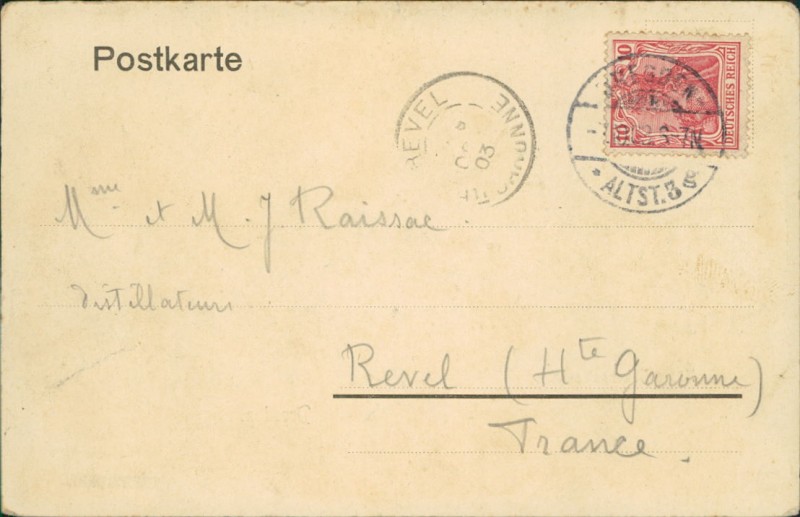 Postkarte
10 10
DEUTSCHES REICH
ALTST. 3 g
REVEL
GARONNE
03
Mme et M. J Raissac
distillateurs
Revel (Hte Garonne)
France.